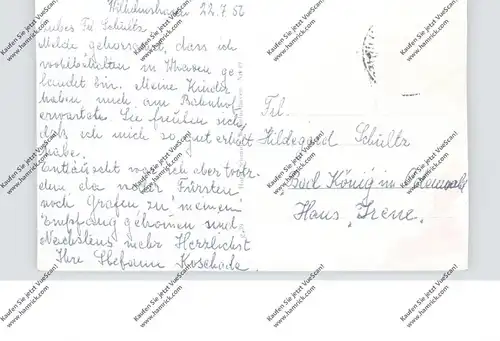 Wilhelmshaven 22.7.56
Liebes Frl. Schültz
Melde gehorsamst, dass ich
wohlbehalten in Whaven ge
landet bin. Meine Kinder
haben mich am Bahnhof
erwartet. Sie freuten sich,
daß ich mich so gut erholt
habe.
Enttäuscht war ich aber trotz
dem da weder Fürsten
noch Grafen zu "meinem"
Empfang gekommen sind
Nächstens mehr Herzlichst
Ihre Stefanie Koschade.
Frl.
Hildegard Schültz
Bad König im Odenwald
Haus "Irene"
Kaufen Sie jetzt VueScan!
www.hamrick.com